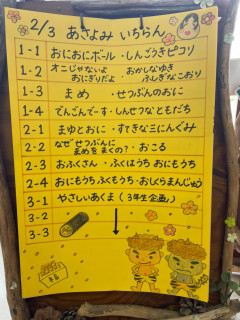 2/3 あさよみ いちらん
1-1 おにおにボール・しんごうきピコリ
1-2 オニじゃないよ おかしなゆき
おにぎりだよ ・ふしぎなこおり
1-3 まめ ・せつぶんのおに
1-4 でんごんでーす・しんせつなともだち
2-1 まゆとおに・すてきな三にんぐみ
2-2 なぜ せつぶんに
まめをまくの?・おこる
2-3 おふくさん・ふくはうち おにもうち
2-4 おにもうちふくもうち・おしくらまんじゅう
3-1 やさしいあくま(3年生企画)
3-2
3-3